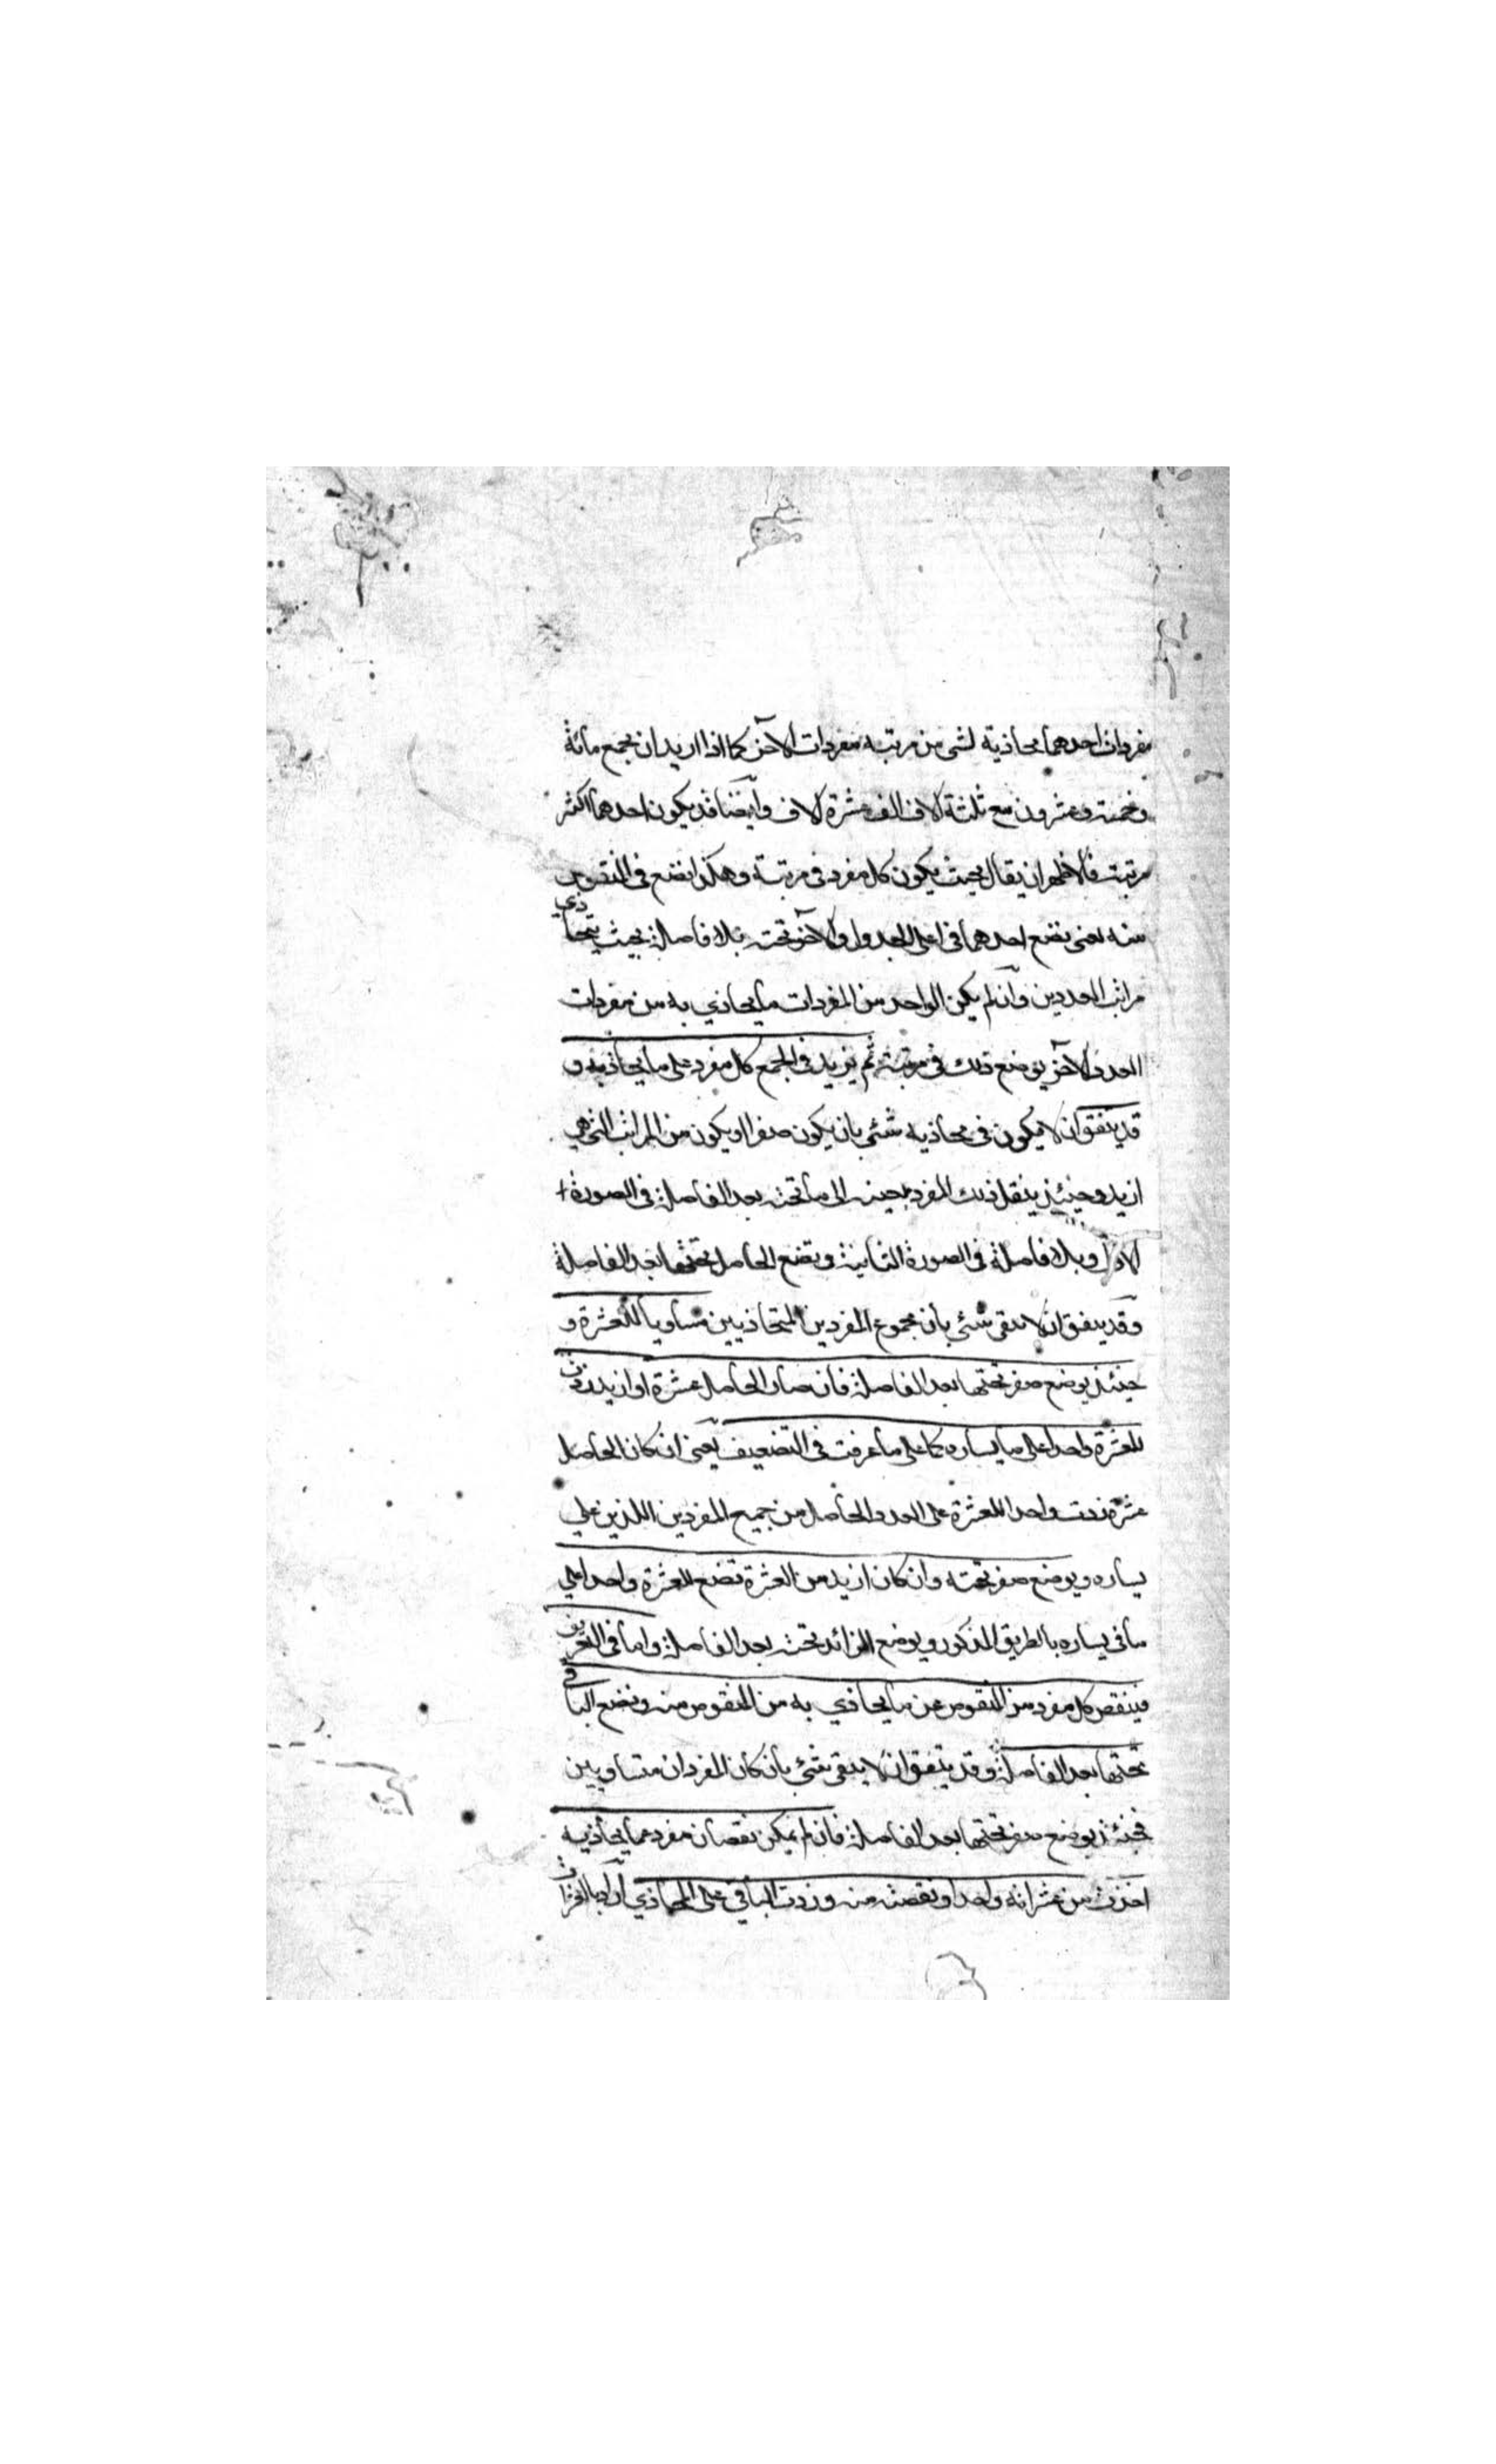 مفردات احدهما محاذية لشئ من مرتبة مفردات الآخر كما اذا اريد ان يجمع مائة
وخمسة وعشرون مع ثلثة آلاف الف عشرة آلاف وايضا قد يكون احدهما اكثر
مرتبة فالاظهر ان يقال بحيث يكون كل مفرد فى مرتبة وهكذا نضع فى المنقوص
منه يعنى نضع احدهما فى اعلى الجدول والآخر تحته بلا فاصلة بحيث يتحاذي
مراتب العددين وان لم يكن الواحد من المفردات ما يحاذي به من مفردات
العدد الآخر يوضع ذلك فى مرتبة ثم نزيد فى الجمع كل مفرد على ما يحاذيه و
قد يتفق ان لا يكون فى محاذيه شئى بان يكون صفرا او يكون من المراتب التى هى
ازيد وحينئذ ينقل ذلك المفرد بعينه الى ما تحته بعد الفاصلة فى الصورة
الاولى وبلا فاصلة فى الصورة الثانية ونضع الحاصل تحتها بعد الفاصلة
وقد يتفق ان لا يبقى شئى بان مجموع المفردين المتحاذيين مساويا للعشرة و
حينئذ يوضع صفر تحتها بعد الفاصلة فان صار الحاصل عشرة او ازيد زدت
للعشرة واحدا على ما يساره كما على ما عرفت فى التضعيف يعنى ان كان الحاصل
عشرة زدت واحدا للعشرة على العدد الحاصل من جميع المفردين اللذين على
يساره ويوضع صفر تحته وان كان ازيد من العشرة تضع للعشرة واحدا على
ما فى يساره بالطريق المذكور ويوضع الزائد تحته بعد الفاصلة واما فى التفريق
فينقص كل مفرد من المنقوص عن ما يحاذي به من المنقوص منه ونضع الباقى
تحتها بعد الفاصلة وقد يتفق ان لا يبقى شئى بان كان المفردان متساويين
فحينئذ يوضع صفر تحتها بعد الفاصلة فان لم يمكن نقصان مفرد عما يحاذيه
اخذت من عشراته واحدا ونقصته منه وزدت الباقي على المحاذي اراد بالعشرات